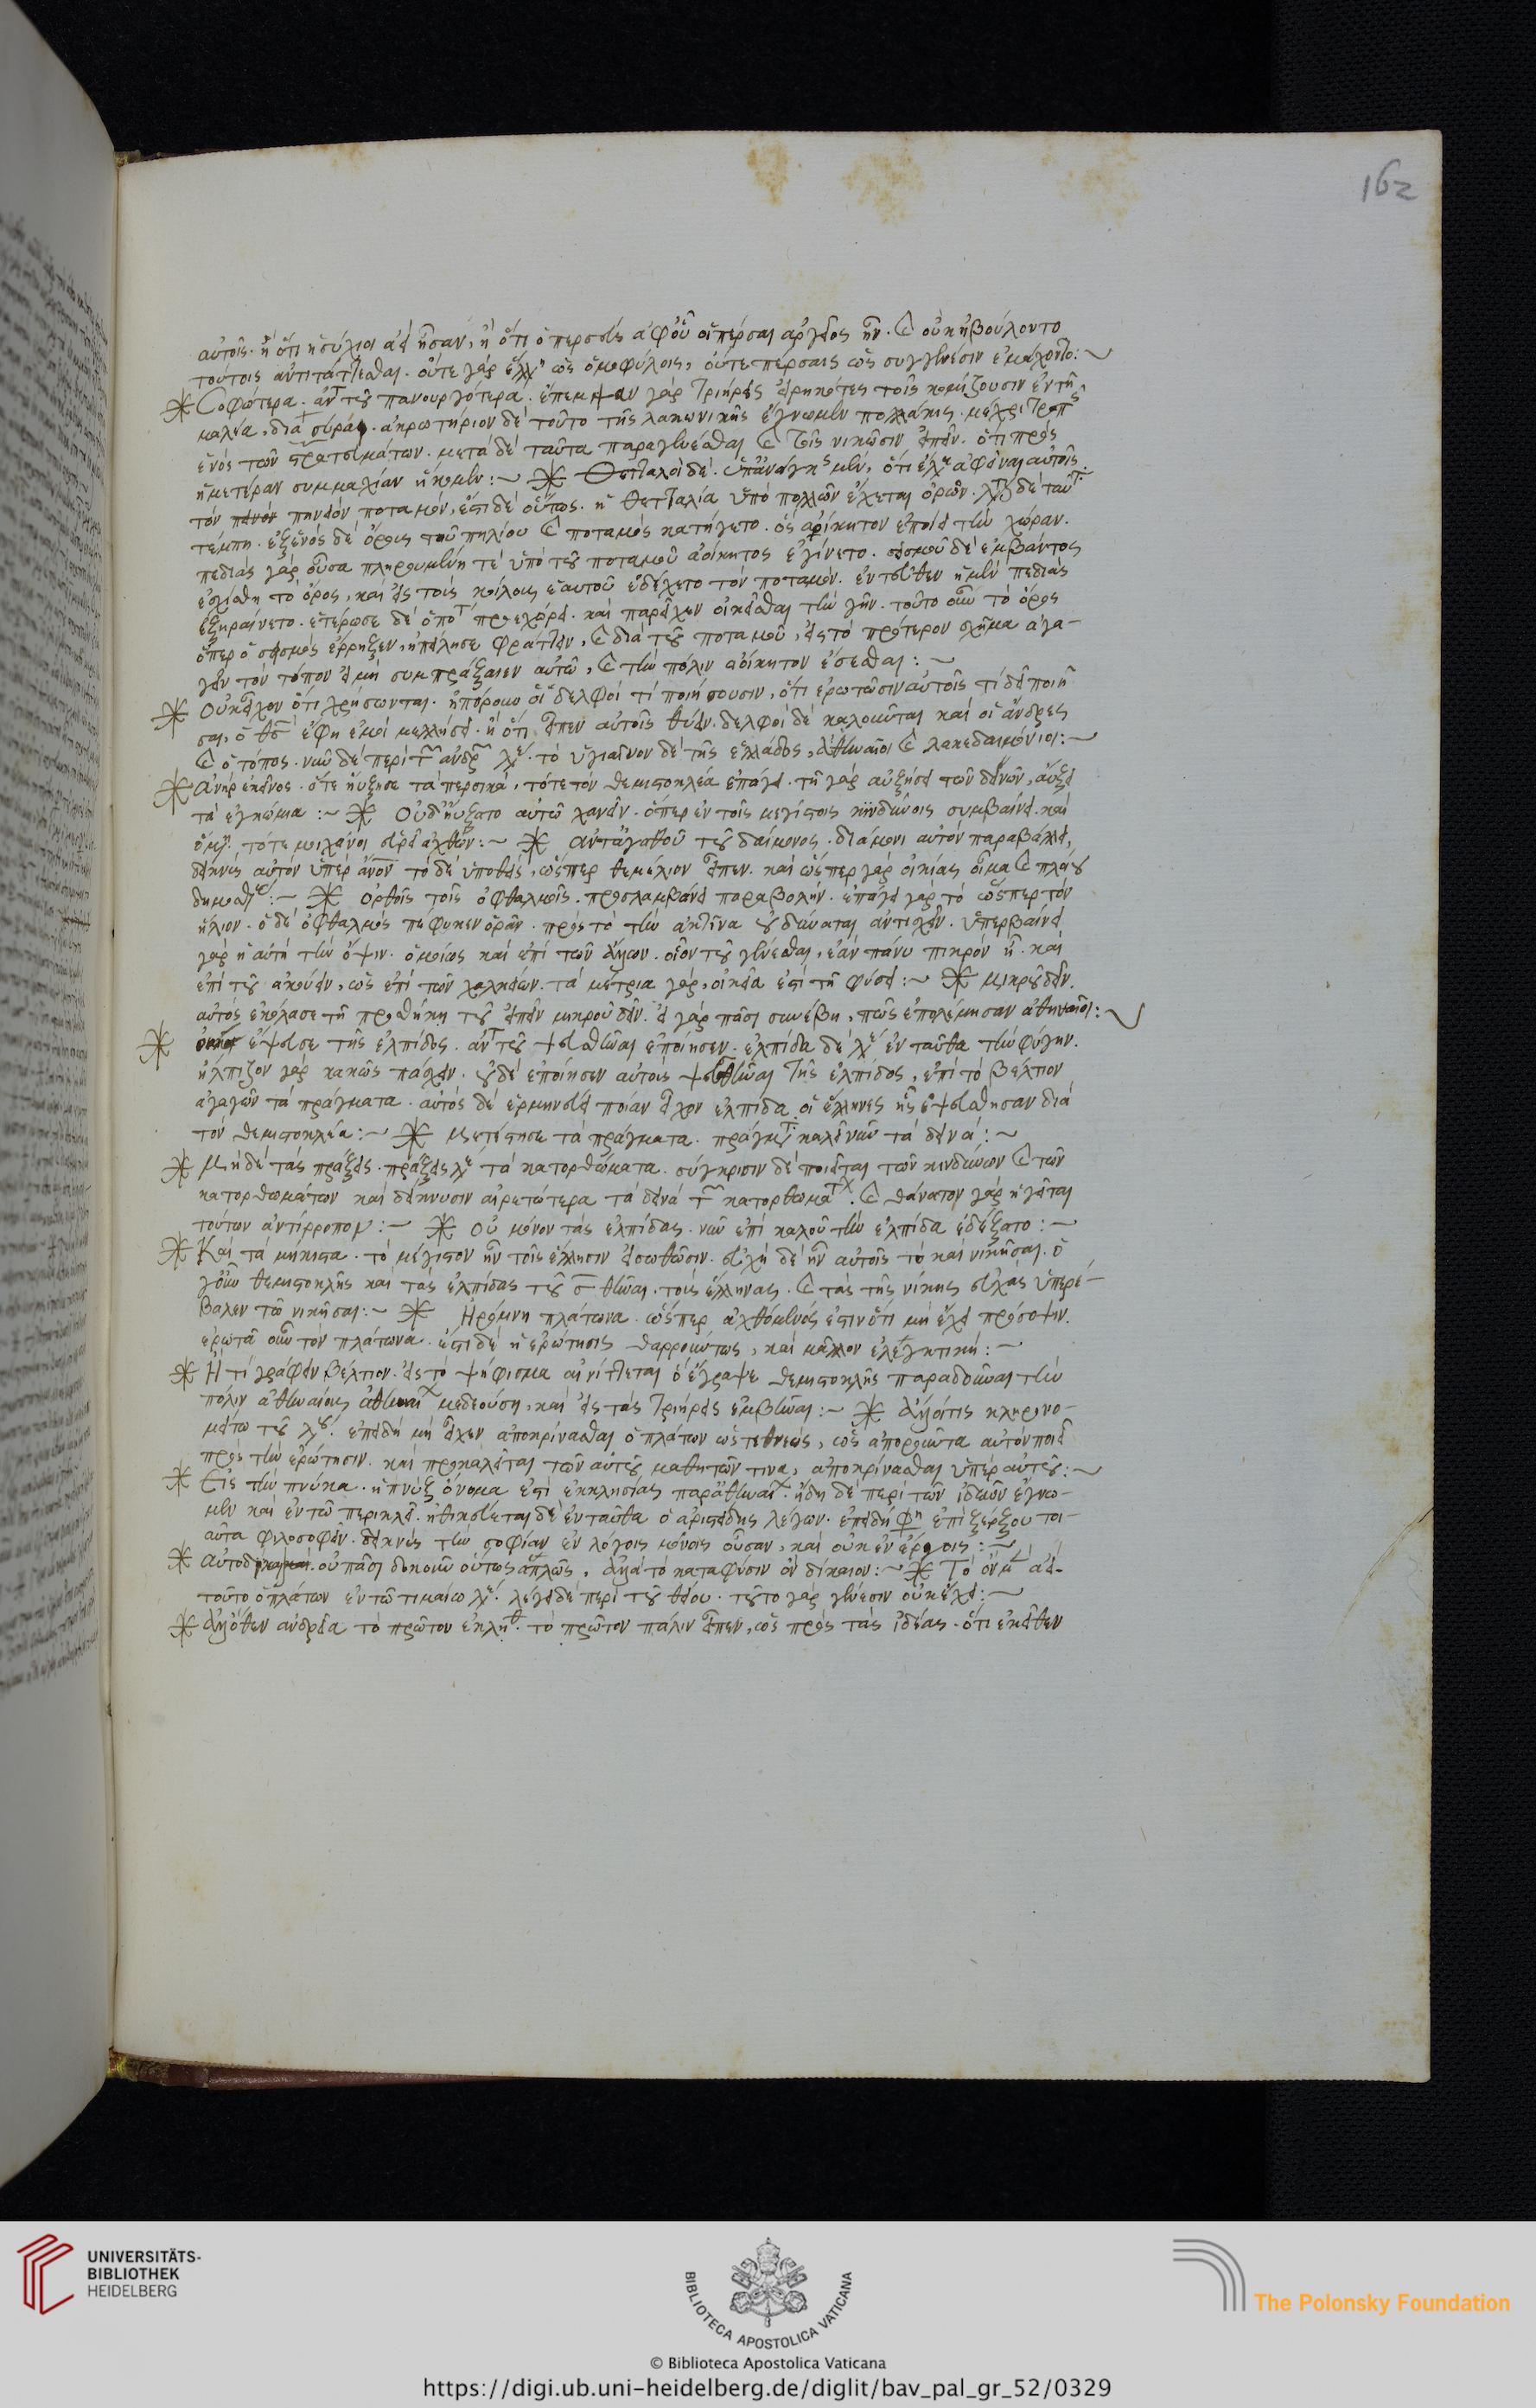 162
αὐτοῖς. ἢ ὅτι ἡσύχιοι ἀεὶ ἦσαν, ἢ ὅτι ὁ περσεὺς ἀφ' οὗ οἱ πέρσαι ἀργεῖος ἦν. καὶ οὐκ ἠβούλοντο
τούτοις ἀντιτάττεσθαι. οὔτε γὰρ ὡς ὁμοφύλοις, οὔτε πέρσαις ὡς συγγενέσιν ἐμάχοντο:~
※ Σοφώτερα. ἀντὶ τοῦ πανουργότερα. ἔπεμψαν γὰρ τριήρεις εἰρηκότες τοῖς κομίζουσιν ἐν τῇ
μαλέα, διατρίβειν. ἀκρωτήριον δὲ τοῦτο τῆς λακωνικῆς ἔγνωμεν πολλάκις. μέχρι
ἑνὸς τῶν στρατευμάτων. μετὰ δὲ ταῦτα παραγενέσθαι καὶ τοῖς νικῶσιν εἰπεῖν. ὅτι πρὸς
ἡμετέραν συμμαχίαν ἥκομεν:~ ※ Θετταλοὶ δὲ. ὑπ' ἀνάγκης μὲν, ὅτι
τὸν πηνειὸν ποταμόν, ἔστι δὲ οὕτως. ἡ θετταλία ὑπὸ πολλῶν ἔχεται ὀρῶν.
τέμπη. ἐξ ἑνὸς δὲ ὄρους τοῦ πηλίου καὶ ποταμὸς κατήγετο. ὃς ἀοίκητον ἐποίει τὴν χώραν.
πεδιὰς γὰρ οὖσα πληρουμένη τε ὑπὸ τοῦ ποταμοῦ ἀοίκητος ἐγίνετο. σεισμοῦ δὲ ἐμβάντος
ἐσχίσθη τὸ ὄρος, καὶ εἰς τοὺς κοίλους ἑαυτοῦ ἐδέχετο τὸν ποταμόν. ἐντεῦθεν ἡ μὲν πεδιὰς
ἐξηραίνετο. ἑτέρωσε δὲ ὁ ποταμὸς προεχώρει. καὶ παρεῖχεν οἰκεῖσθαι τὴν γῆν. τοῦτο οὖν τὸ ὄρος
ὅπερ ὁ σεισμὸς ἔρρηξεν, ἠπείλησε φράττειν, καὶ διὰ τοῦ ποταμοῦ, εἰς τὸ πρότερον σχῆμα ἀγα-
γεῖν τὸν τόπον εἰ μὴ συμπράξαιεν αὐτῷ, καὶ τὴν πόλιν ἀοίκητον ἔσεσθαι:~
※ Οὐκ εἶχον ὅτι χρήσονται. ἠπόρουν οἱ δελφοὶ τί ποιήσουσιν, ὅτι ἐρωτῶσιν αὐτοῖς τί δεῖ ποιῆ
σαι, ὁ θεὸς ἔφη ἐμοὶ μελλήσει. ἢ ὅτι εἶπεν αὐτοῖς θύειν. δελφοὶ δὲ καλοῦνται καὶ οἱ ἄνδρες
καὶ ὁ τόπος. νῦν δὲ περὶ τῶν ἀνδρῶν λέγει. τὸ ὑγιαῖνον δὲ τῆς ἑλλάδος, ἀθηναῖοι καὶ λακεδαιμόνιοι:~
※ ἀνὴρ ἐκεῖνος. ὅτε ηὔξησε τὰ περσικά, τότε τὸν θεμιστοκλέα ἐπάγει. τῇ γὰρ αὐξήσει τῶν δεινῶν, αὔξει
τὰ ἐγκώμια:~ ※ Οὐδ' ηὔξατο αὐτῷ χανεῖν. ὅπερ ἐν τοῖς μεγίστοις κινδύνοις συμβαίνει. καὶ
ὅμηρος. τότε μοι χάνοι εὐρεῖα χθών:~ ※ ἀντ' ἀγαθοῦ του δαίμονος. δαίμονι αὐτὸν παραβάλλει,
δεικνὺς αὐτὸν ὑπὲρ ἄνθρωπον τὸ δὲ ὑποθεὶς, ὥσπερ θεμέλιον εἶπεν. καὶ ὥσπερ γὰρ οἰκίας οἶμαι καὶ πλοίου
δημοσθένης:~ ※ ὀρθοῖς τοῖς ὀφθαλμοῖς. προσλαμβάνει παραβολήν. ἐπάγει γὰρ τὸ ὥσπερ τὸν
ἥλιον. ὁ δὲ ὀφθαλμὸς πέφυκεν ὁρᾶν. πρὸς τὸ τὴν ἀκτῖνα οὐ δύναται ἀντισχεῖν. ὑπερβαίνει
γὰρ ἡ αὐτὴ τὴν ὄψιν. ὁμοίως καὶ ἐπὶ τῶν ἄλλων. οἷον τοῦ γεύεσθαι, ἐὰν πάνυ πικρὸν ᾖ. καὶ
ἐπὶ τοῦ ἀκούειν, ὡς ἐπὶ τῶν χαλκείων. τὰ μέτρια γὰρ, οἰκεῖα ἐστὶ τῇ φύσει:~ ※ μικροῦ δεῖν.
αὐτὸς ἐκόλασε τῇ προσθήκῃ τοῦ εἰπεῖν μικροῦ δεῖν. εἰ γὰρ πᾶσι συνέβη, πῶς ἐπολέμησαν ἀθηναῖοι:~
※ ἔψευσε τῆς ἐλπίδος. ἀντὶ τοῦ ψευσθῆναι ἐποίησεν. ἐλπίδα δὲ λέγει ἐνταῦθα τὴν φύγην.
ἤλπιζον γὰρ κακῶς πάσχειν. οὗ δὲ ἐποίησεν αὐτοὺς ψευσθῆναι τῆς ἐλπίδος, ἐπὶ τὸ βέλτιον
ἀγαγὼν τὰ πράγματα. αὐτὸς δὲ ἑρμηνεύει ποίαν εἶχον ἐλπίδα οἱ ἕλληνες ἧς ἐψεύσθησαν διὰ
τὸν θεμιστοκλέα:~ ※ μετέστησε τὰ πράγματα. πράγματα καλεῖ νῦν τὰ δεινά:~
※ Μηδὲ τὰς πράξεις. πράξεις λέγει τὰ κατορθώματα. σύγκρισιν δὲ ποιεῖται τῶν κινδύνων καὶ τῶν
κατορθωμάτων καὶ δείκνυσιν αἱρετώτερα τὰ δεινὰ τῶν κατορθωμάτων. καὶ θάνατον γὰρ ἡγεῖται
τούτων ἀντίρροπον:~ ※ οὐ μόνον τὰς ἐλπίδας. νῦν ἐπὶ καλοῦ τὴν ἐλπίδα ἐδέξατο:~
※ Καὶ τὰ μήκιστα. τὸ μέγιστον ἦν τοῖς ἕλλησιν εἰ σωθῶσιν. εὐχὴ δὲ ἦν αὐτοῖς τὸ καὶ νικῆσαι. ὁ
γοῦν θεμιστοκλῆς καὶ τὰς ἐλπίδας τοῦ σωθῆναι. τοὺς ἕλληνας. καὶ τὰς τῆς νίκης εὐχὰς ὑπερέ-
βαλεν τῷ νικῆσαι:~ ※ Ἠρόμην πλάτωνα. ὥσπερ ἀχθόμενός ἐστιν ὅτι μὴ ἔχει πρόσοψιν.
ἐρωτᾷ οὖν τὸν πλάτωνα. ἔστι δὲ ἡ ἐρώτησις θαρρούντως, καὶ μᾶλλον ἐλεγκτική:~
※ Ἢ τί γράφειν βέλτιον. εἰς τὸ ψήφισμα αἰνίττεται ὃ ἔγραψε θεμιστοκλῆς παραδοῦναι τὴν
πόλιν ἀθηναίους ἀθηνᾷ μεδεούσῃ, καὶ εἰς τὰς τριήρεις ἐμβῆναι:~ ※ ἀλλ' ὅστις κληρονο-
μείτω τοῦ λόγου. ἐπειδὴ μὴ εἶχεν ἀποκρίνασθαι ὁ πλάτων ὡς τεθνεώς, ὡς ἀποροῦντα αὐτὸν ποιεῖ
πρὸς τὴν ἐρώτησιν. καὶ προκαλεῖται τῶν αὐτοῦ μαθητῶν τινα, ἀποκρίνασθαι ὑπὲρ αὐτοῦ:~
※ Εἰς τὴν πνύκα. ἡ πνὺξ ὄνομα ἐστὶ ἐκκλησίας παρ' ἀθηναίοις. ἤδη δὲ περὶ τῶν ἰδεῶν ἔγνω-
μεν καὶ ἐν τῷ περικλεῖ. ἠθικεύεται δὲ ἐνταῦθα ὁ ἀριστείδης λέγων. ἐπειδὴ ἐπὶ ξέρξου τοι-
αῦτα φιλοσοφεῖν. δεικνὺς τὴν σοφίαν ἐν λόγοις μόνοις οὖσαν, καὶ οὐκ ἐν ἔργοις:~
※ αὐτοδίκαιον. οὐ πᾶσι δοκοῦν οὕτως ἁπλῶς, ἀλλὰ τὸ κατὰ φύσιν ὂν δίκαιον:~ ※ Τὸ ὂν μὲν ἀεὶ.
τοῦτο ὁ πλάτων ἐν τῷ τιμαίῳ λέγει. λέγει δὲ περὶ τοῦ θείου. τοῦτο γὰρ γένεσιν οὐκ ἔχει:~
※ ἀλλόθεν ἀνδρεία τὸ πρῶτον ἐκλήθη. τὸ πρῶτον πάλιν εἶπεν, ὡς πρὸς τὰς ἰδέας. ὅτι ἐκεῖθεν
UNIVERSITÄTS-
BIBLIOTHEK
HEIDELBERG
BIBLIOTECA APOSTOLICA VATICANA
The Polonsky Foundation
© Biblioteca Apostolica Vaticana
https://digi.ub.uni-heidelberg.de/diglit/bav_pal_gr_52/0329